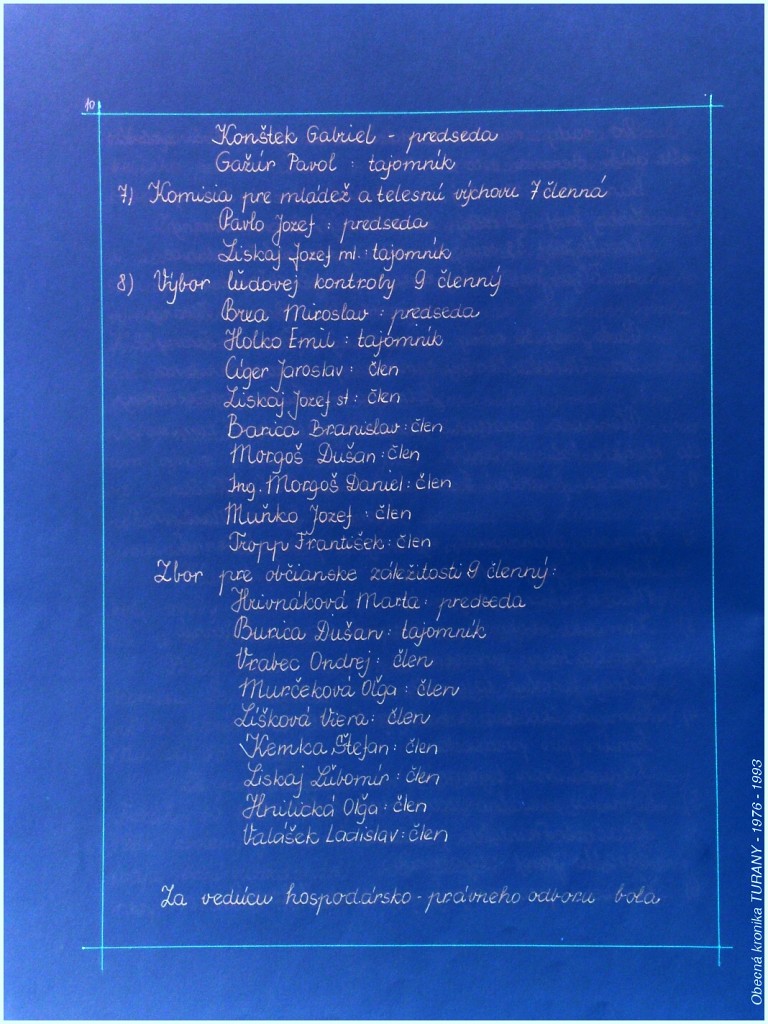 10
Konštek Gabriel - predseda
Gažúr Pavol : tajomník
7) Komisia pre mládež a telesnú výchovu 7 členná
Pavlo Jozef : predseda
Liskaj Jozef ml. : tajomník
8) Výbor ľudovej kontroly 9 členný
Brza Miroslav : predseda
Holko Emil : tajomník
Cíger Jaroslav : člen
Liskaj Jozef st : člen
Barica Branislav : člen
Morgoš Dušan : člen
Ing. Morgoš Daniel : člen
Muňko Jozef : člen
Tropp František : člen
Zbor pre občianske záležitosti 9 členný :
Hrivnáková Marta : predseda
Burica Dušan : tajomník
Vrabec Ondrej : člen
Murčeková Oľga : člen
Líšková Viera : člen
Kemka Štefan : člen
Liskaj Ľubomír : člen
Hnilická Oľga : člen
Valášek Ladislav : člen
Za vedúcu hospodársko - právneho odboru bola
Obecná kronika TURANY - 1976 - 1993